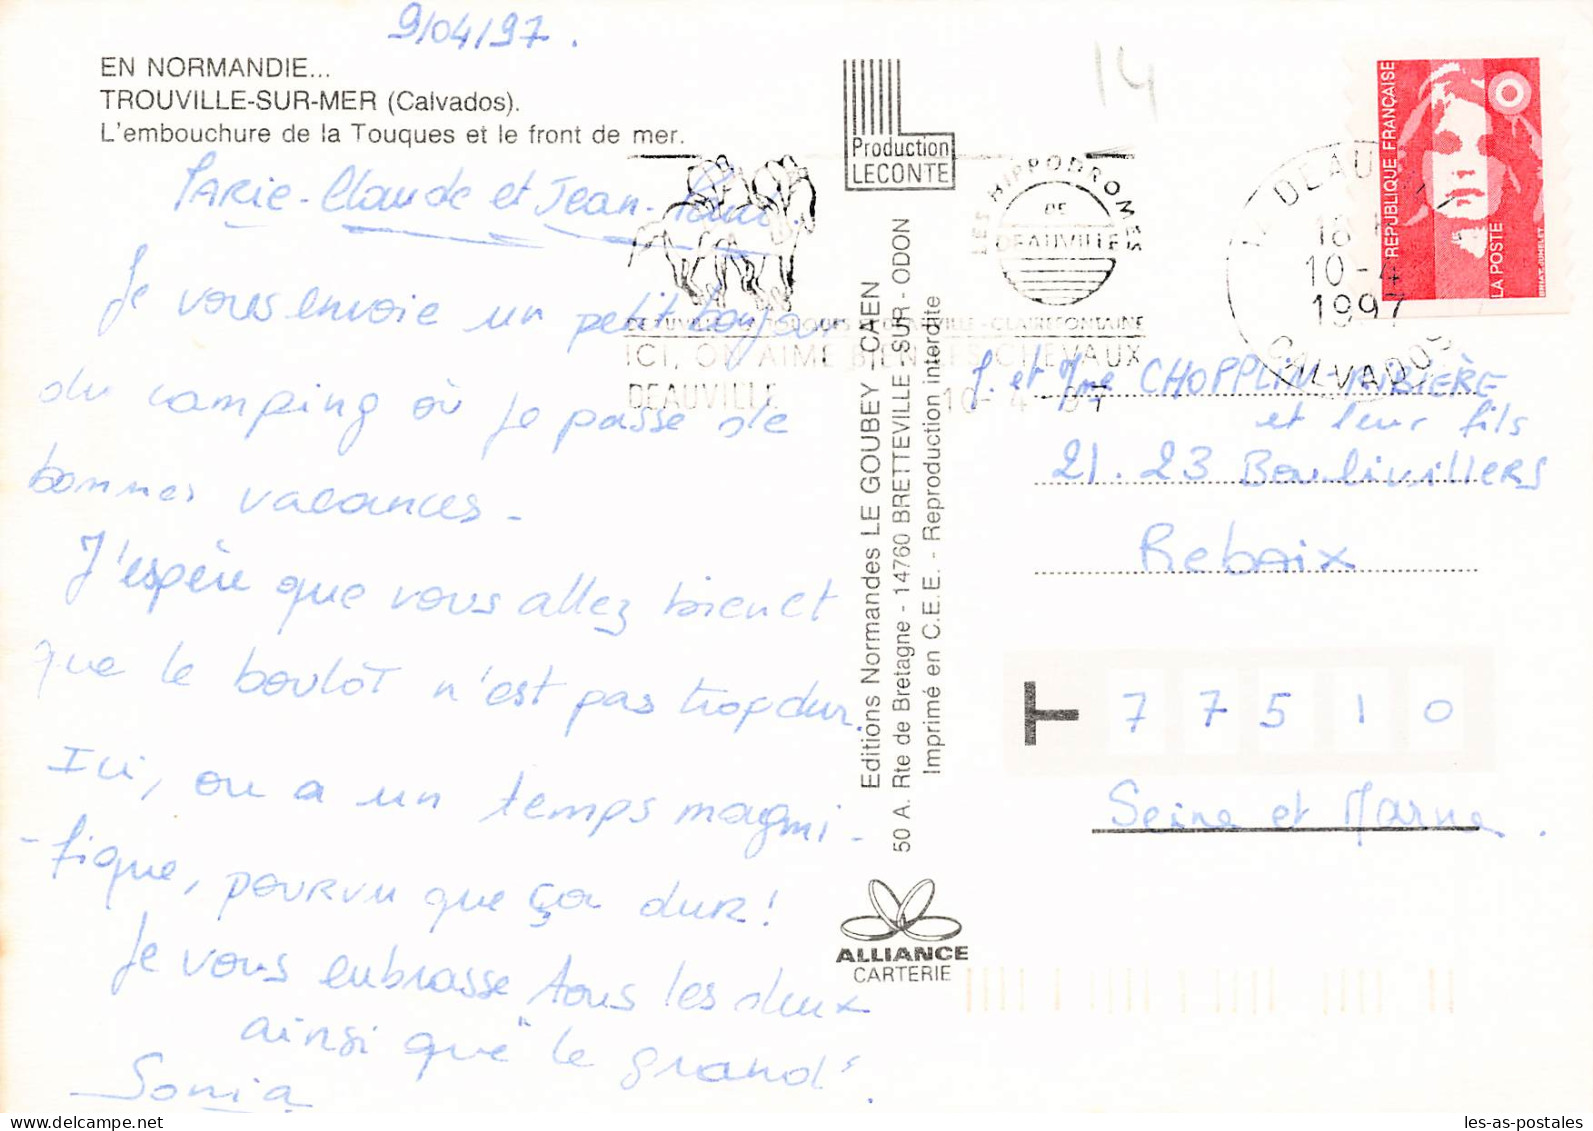 9/04/97.
EN NORMANDIE...
TROUVILLE-SUR-MER (Calvados).
L'embouchure de la Touques et le front de mer.
Marie-Claude et Jean-Paul.
Je vous envoie un petit bonjour
du camping où je passe de
bonnes vacances-
J'espère que vous allez bien et
que le boulot n'est pas trop dur.
Ici, on a un temps magni-
-fique, pourvu que ça dure!
Je vous embrasse tous les deux
ainsi que "le grand".
Sonia
Production
LECONTE
Editions Normandes LE GOUBEY - CAEN
50 A. Rte de Bretagne - 14760 BRETTEVILLE - SUR - ODON
Imprimé en C.E.E. - Reproduction interdite
ALLIANCE
CARTERIE
14
LES HIPPODROMES
DE
DEAUVILLE
DEAUVILLE-LA TOUQUES & DEAUVILLE-CLAIREFONTAINE
ICI, ON AIME BIEN LES CHEVAUX
DEAUVILLE 10-4-97
14 DEAUVILLE
18 H
10-4
1997
CALVADOS
REPUBLIQUE FRANÇAISE
LA POSTE
BRIAT-JUMELET
et Mme CHOPPLIN
et leur fils
21.23 Boulivillers
Rebaix
77510
Seine et Marne.
les-as-postales.com